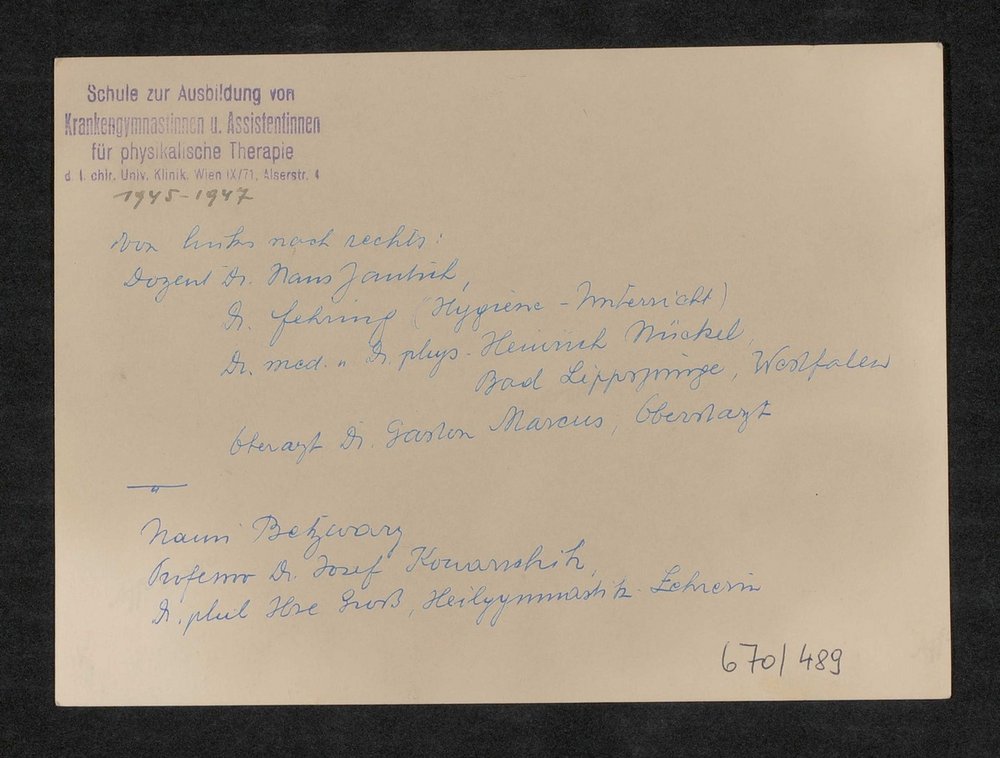 Schule zur Ausbildung von
Krankengymnastinnen u. Assistentinnen
für physikalische Therapie
d. I. chir. Univ. Klinik, Wien IX/71, Alserstr. 4
1945-1947
Von links nach rechts:
Dozent Dr. Hans Jantsch,
Dr. Fehring (Hygiene-Unterricht)
Dr. med. u Dr phys. Heinrich Nückel,
Bad Lippspringe, Westfalen
Oberarzt Dr. Gaston Marcus, Oberstarzt
— " —
Nani Betzwary
Professor Dr. Josef Kowarschik,
Dr. phil Ilse Groß, Heilgymnastik-Lehrerin
670/489